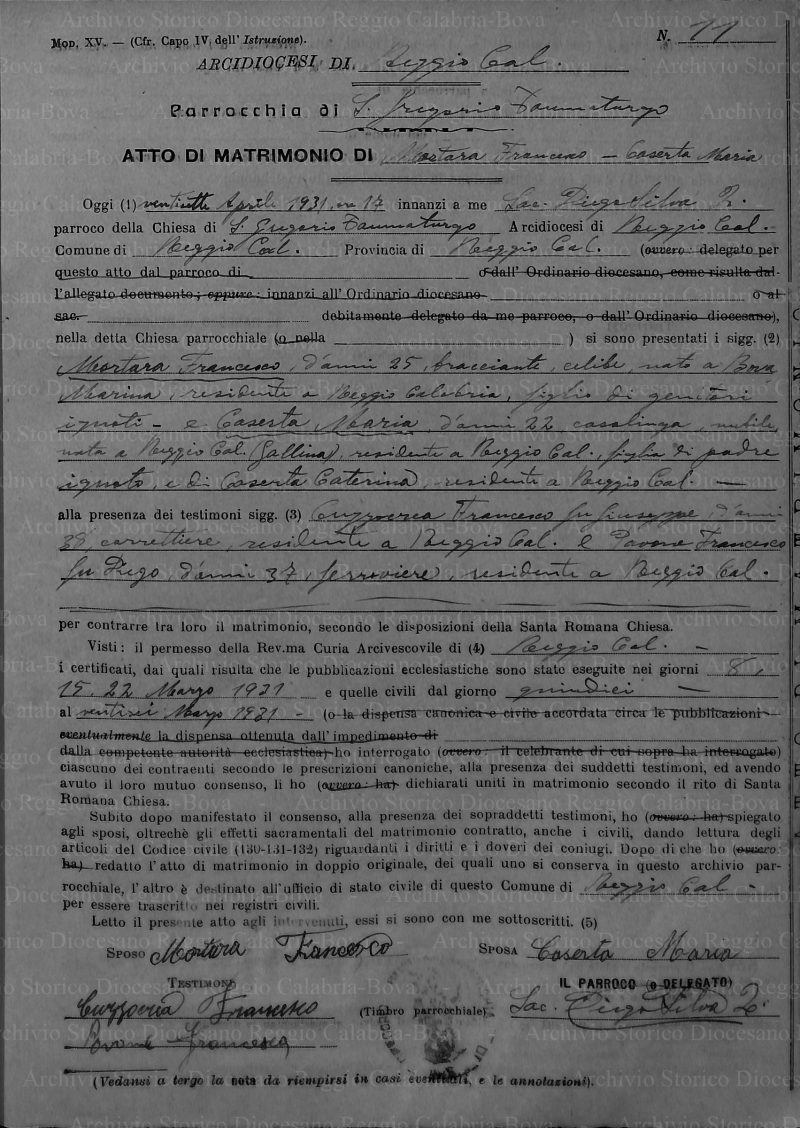 Mod. XV. — (Cfr. Capo IV. dell' Istruzione).
N. 11
ARCIDIOCESI DI Reggio Cal.
Parrocchia di S. Gregorio Taumaturgo
ATTO DI MATRIMONIO DI Mortara Francesco — Caserta Maria
Oggi (1) ventisette Aprile 1931, ore 17 innanzi a me Sac. Diego Silva P.
parroco della Chiesa di S. Gregorio Taumaturgo Arcidiocesi di Reggio Cal.
Comune di Reggio Cal. Provincia di Reggio Cal. (ovvero: delegato per
questo atto dal parroco di o dall' Ordinario diocesano, come risulta dal-
l'allegato documento; oppure: innanzi all' Ordinario diocesano o al
sac. debitamente delegato da me parroco, o dall' Ordinario diocesano),
nella detta Chiesa parrocchiale (o nella ) si sono presentati i sigg. (2)
Mortara Francesco, d'anni 25, bracciante, celibe, nato a Bova
Marina, residente a Reggio Calabria, figlio di genitori
ignoti - e Caserta Maria, d'anni 22, casalinga, nubile,
nata a Reggio Cal. (Gallina), residente a Reggio Cal., figlia di padre
ignoto, e di Caserta Caterina, residente a Reggio Cal. —
alla presenza dei testimoni sigg. (3) Cuzzocrea Francesco fu Giuseppe d'anni
38, carrettiere, residente a Reggio Cal. e Pavone Francesco
fu Diego, d'anni 37, ferroviere, residente a Reggio Cal.
per contrarre tra loro il matrimonio, secondo le disposizioni della Santa Romana Chiesa.
Visti: il permesso della Rev.ma Curia Arcivescovile di (4) Reggio Cal. —
i certificati, dai quali risulta che le pubblicazioni ecclesiastiche sono state eseguite nei giorni 8,
15, 22 Marzo 1931 e quelle civili dal giorno quindici —
al ventisei Marzo 1931 - (o la dispensa canonica e civile accordata circa le pubblicazioni
eventualmente la dispensa ottenuta dall' impedimento di
dalla competente autorità ecclesiastica) ho interrogato (ovvero: il celebrante di cui sopra ha interrogato)
ciascuno dei contraenti secondo le prescrizioni canoniche, alla presenza dei suddetti testimoni, ed avendo
avuto il loro mutuo consenso, li ho (ovvero: ha) dichiarati uniti in matrimonio secondo il rito di Santa
Romana Chiesa.
Subito dopo manifestato il consenso, alla presenza dei sopraddetti testimoni, ho (ovvero: ha) spiegato
agli sposi, oltrechè gli effetti sacramentali del matrimonio contratto, anche i civili, dando lettura degli
articoli del Codice civile (130-131-132) riguardanti i diritti e i doveri dei coniugi. Dopo di che ho (ovvero:
ha) redatto l' atto di matrimonio in doppio originale, dei quali uno si conserva in questo archivio par-
rocchiale, l' altro è destinato all' ufficio di stato civile di questo Comune di Reggio Cal -
per essere trascritto nei registri civili.
Letto il presente atto agli intervenuti, essi si sono con me sottoscritti. (5)
SPOSO Mortara Francesco SPOSA Caserta Maria
TESTIMONI IL PARROCO (o DELEGATO)
Cuzzocrea Francesco (Timbro parrocchiale) Sac. Diego Silva P.
Pavone Francesco
(Vedansi a tergo la nota da riempirsi in casi eventuali, e le annotazioni).
Archivio Storico Diocesano Reggio Calabria-Bova